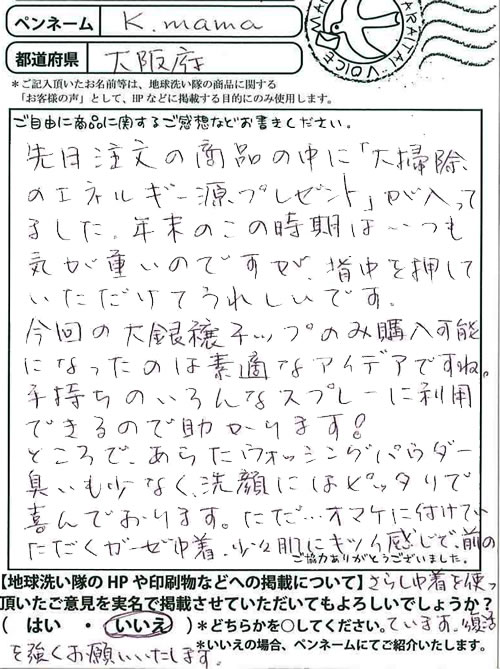 ペンネーム K.mama
都道府県 大阪府
*ご記入頂いたお名前等は、地球洗い隊の商品に関する
「お客様の声」として、HPなどに掲載する目的にのみ使用します。
ご自由に商品に関するご感想などお書きください。
先日注文の商品の中に「大掃除
のエネルギー源プレゼント」が入って
ました。年末のこの時期はいつも
気が重いのですが、背中を押して
いただけてうれしいです。
今回の大銀穣チップのみ購入可能
になったのは素適なアイデアですね。
手持ちのいろんなスプレーに利用
できるので助かります!
ところで、あらたウォッシングパウダー
臭いも少なく、洗顔にはピッタリで
喜んでおります。ただ…オマケに付けてい
ただくガーゼ巾着、少々肌にキツイ感じで、前の
ご協力ありがとうございました。
【地球洗い隊のHPや印刷物などへの掲載について】さらし巾着を使っ
頂いたご意見を実名で掲載させていただいてもよろしいでしょうか?
( はい ・ いいえ ) *どちらかを○してください。ています。復活
*いいえの場合、ペンネームにてご紹介いたします。
を強くお願いいたします。